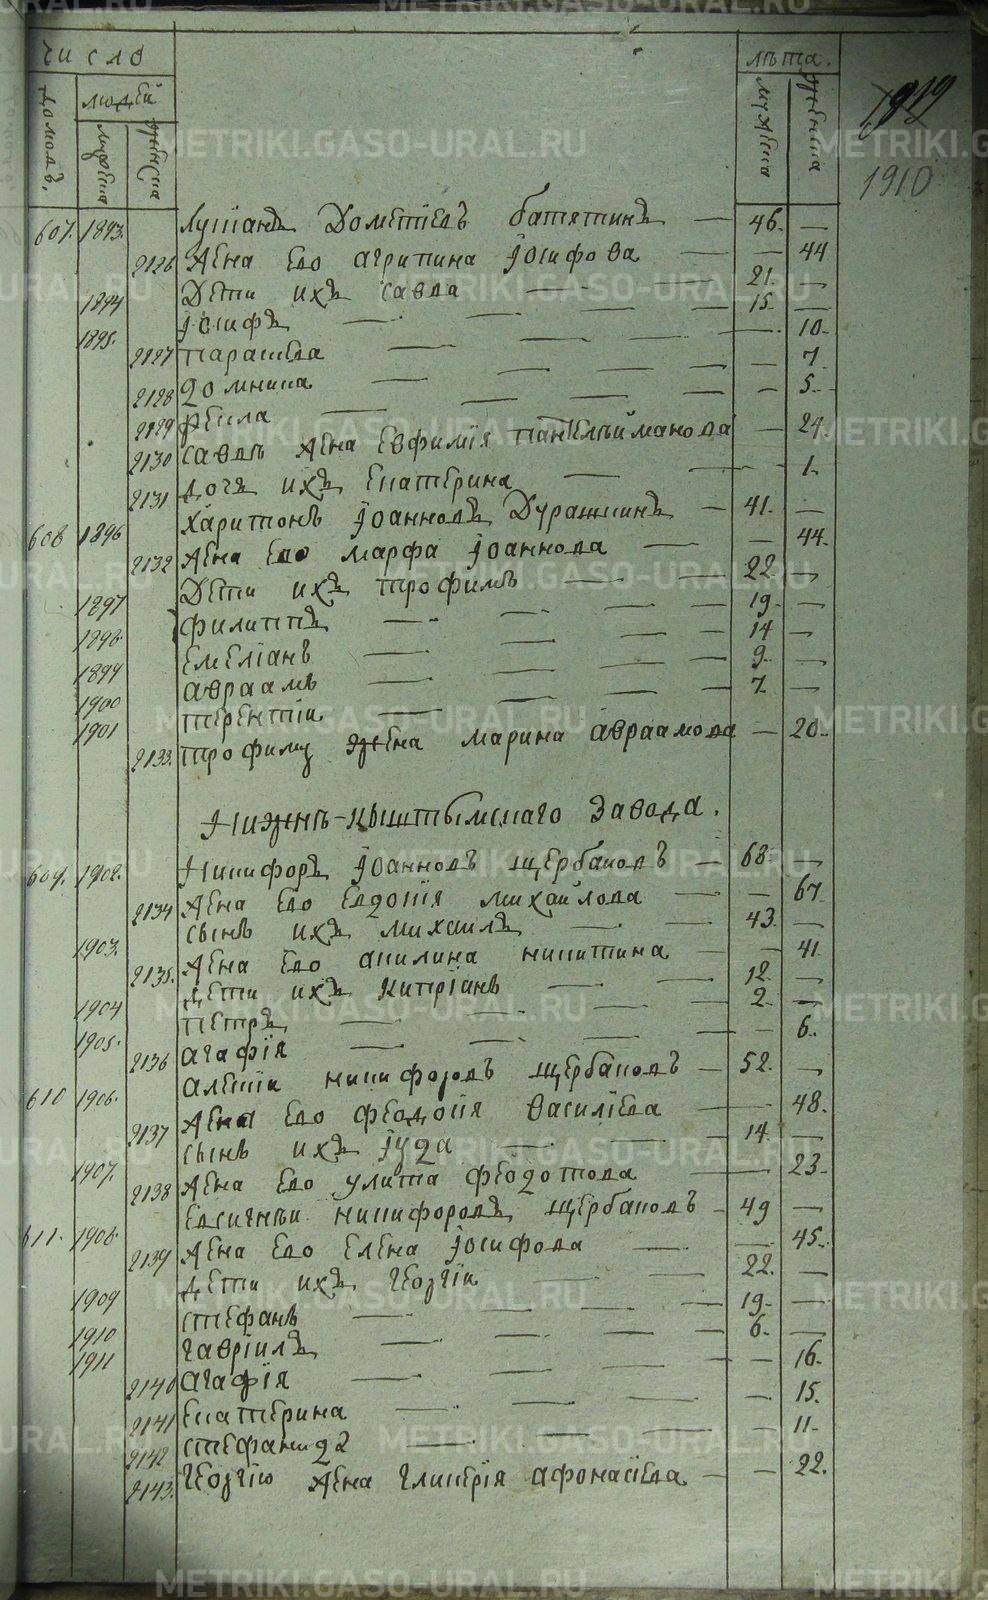 число лѣта.
домовъ. людей мужеска женска мужеска женска
1919
1910
607. 1893. Лукіанъ Дометіевъ батятинъ — 46. —
2126 Жена его агрипина Іосифова — — 44
1894 Дѣти ихъ савва — 21. —
1895. Іосифъ — 15. —
2127 параскева — — 10.
2128 Домника — — 7
2129 фекла — — 5.
2130 саввы жена Евфимія пантелеймонова — 24.
2131 дочь ихъ Екатерина — — 1.
608 1896 харитонъ Іоанновъ Дурашкинъ — 41. —
2132 Жена его марфа Іоаннова — — 44.
1897 Дѣти ихъ трофимъ — 22 —
1898. филиппъ — 19. —
1899 емеліанъ — 14 —
1900 авраамъ — 9. —
1901 терентіи — 7. —
2133. трофиму жена марина авраамова — 20.
Нижнъ-Кыштымскаго Завода.
609. 1902. Никифоръ Іоанновъ щербаковъ — 68. —
2134 Жена его евдокія михайлова — — 67.
1903. сынъ ихъ михаилъ — 43. —
2135. Жена его акилина никитина — — 41.
1904 дѣти ихъ Кипріянъ — 12. —
1905. петръ — 2. —
2136 агафія — — 6.
610 1906. алексіи никифоровъ щербаковъ — 52. —
2137 Жена его феодосія василіева — 48.
1907. сынъ ихъ Іуда — 14. —
2138 Жена его улита федотова — 23.
611. 1908. Евсигнѣи никифоровъ щербаковъ — 49 —
2139 Жена его елена Іосифова — — 45.
1909 дѣти ихъ георгіи — 22. —
1910 стефанъ — 19. —
1911 гавріилъ — 6. —
2140 агафія — — 16.
2141 Екатерина — — 15.
2142 стефанида — — 11.
2143. георгію жена гликерія афонасіева — — 22.
METRIKI.GASO-URAL.RU